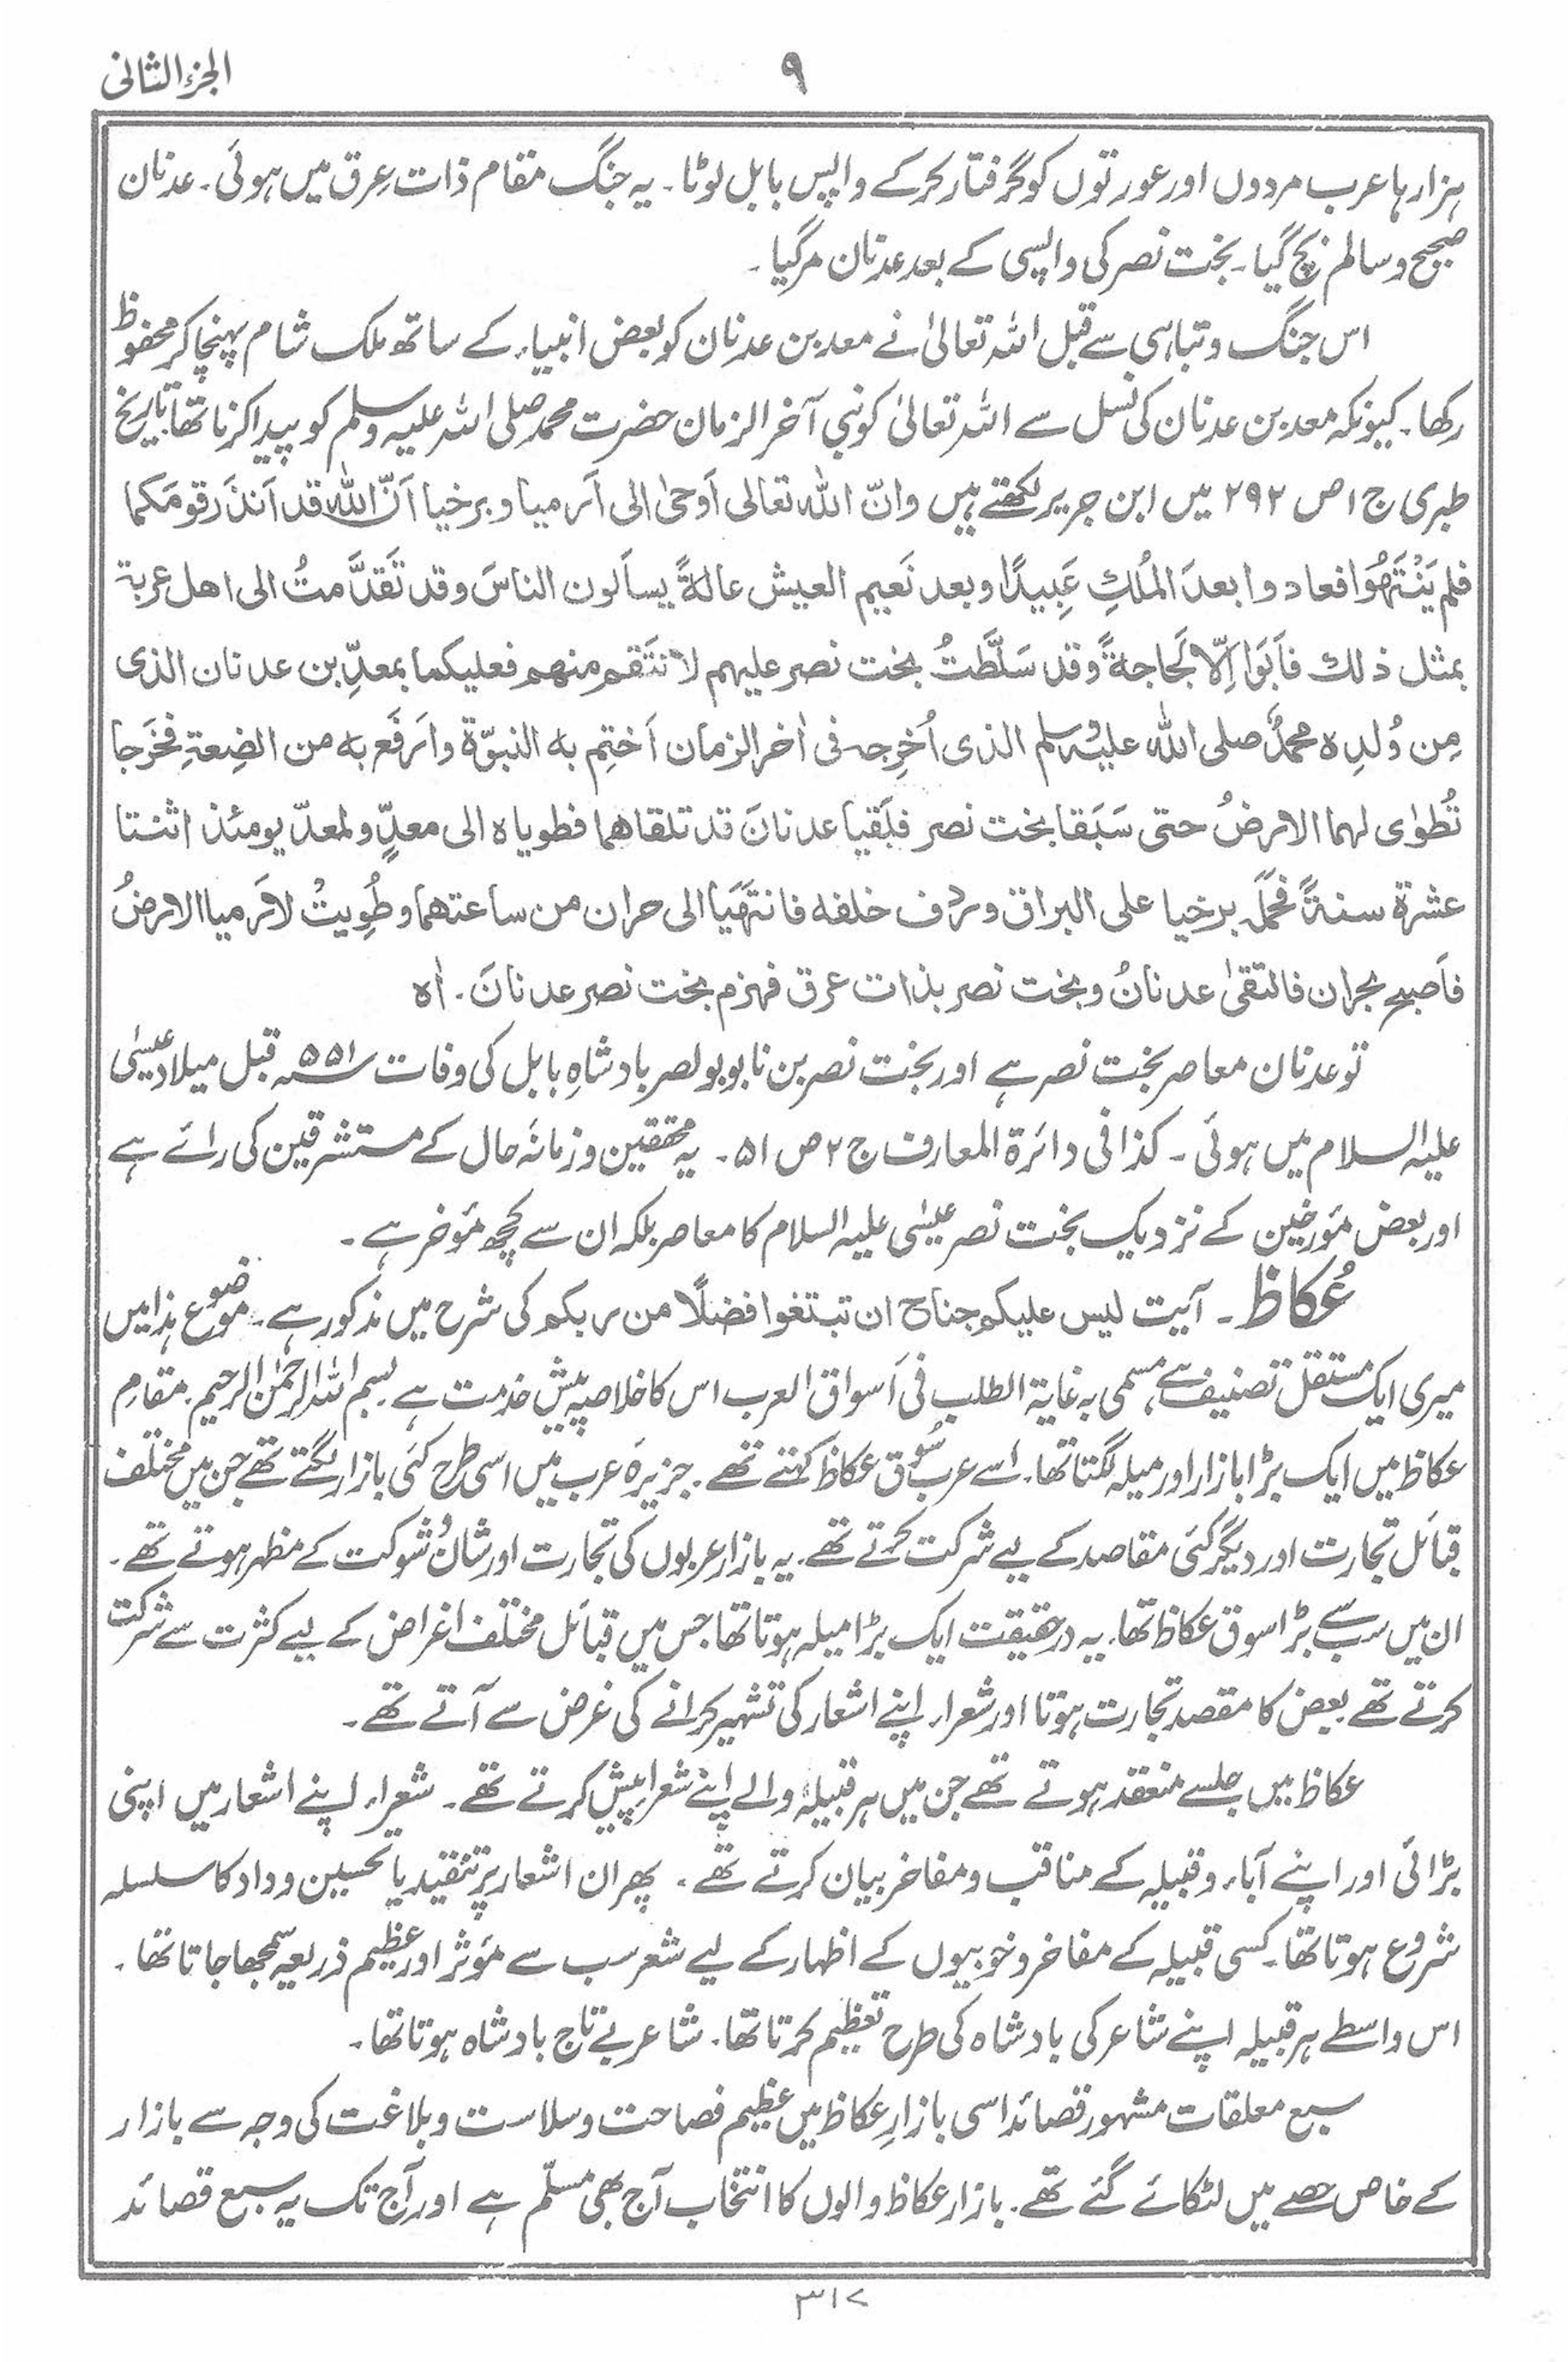 الجزء الثانی
۹
ہزارہا عرب مردوں اور عورتوں کو گرفتار کرکے واپس بابل لوٹا۔ یہ جنگ مقام ذات عِرق میں ہوئی۔ عدنان
صحیح وسالم بچ گیا۔ بخت نصر کی واپسی کے بعد عدنان مرگیا۔
اس جنگ وتباہی سے قبل اللہ تعالیٰ نے معد بن عدنان کو بعض انبیاء کے ساتھ ملک شام پہنچاکر محفوظ
رکھا۔ کیونکہ معد بن عدنان کی نسل سے اللہ تعالیٰ کو نبی آخر الزمان حضرت محمد صلی اللہ علیہ وسلم کو پیدا کرنا تھا۔ تاریخ
طبری ج ۱ ص ۲۹۲ میں ابن جریر لکھتے ہیں وانّ اللہ تعالی اَوحیٰ الی اَرمیا و برخیا اَنّ اللہ قد اَنذَر قومَکما
فلم یَنْتَھُوا فعادوا بعدَ المُلكِ عَبِیدًا وبعد نَعیم العیش عالۃً یسأَلون الناسَ وقد تَقدَّمتُ الی اھل عربۃ
بمثل ذلك فاَبَوا اِلّا لَجاجۃً وقد سَلَّطَتُ بخت نصر علیھم لانتَقم منھم فعلیکما بمعدِّ بن عدنان الذی
مِن وُلدِہ محمدٌ صلی اللہ علیہ وسلم الذی اُخرِجہ فی اٰخر الزمان اَختِم بہ النبوّۃ واَرفَع بہ من الضِعۃِ فخَرَجا
تُطوٰی لھما الارضُ حتی سَبَقا بخت نصر فلَقیا عدنانَ قد تلقاھما فطویاہ الی معدٍّ ولمعدّ یومئذ اثنتا
عشرۃ سنۃً فحَمَلَہ برخیا علی البراق وردف خلفہ فانتھَیَا الی حران من ساعتھما وطُوِیتْ لاَرمیا الارضُ
فاَصبح بحران فالتقیٰ عدنانُ وبخت نصر بذات عرق فھزم بخت نصر عدنانَ۔ اٰہ
تو عدنان معاصر بخت نصر ہے اور بخت نصر بن نابوبولصر بادشاہِ بابل کی وفات ۵۵۱؁ قبل میلاد عیسیٰ
علیہ السلام میں ہوئی۔ کذا فی دائرۃ المعارف ج ۲ ص ۵۱۔ یہ محققین وزمانۂ حال کے مستشرقین کی رائے ہے
اور بعض مؤرخین کے نزدیک بخت نصر عیسٰی علیہ السلام کا معاصر بلکہ ان سے کچھ مؤخر ہے۔
عُکاظ۔ آیت لیس علیکم جناح ان تبتغوا فضلًا من ربکم کی شرح میں مذکور ہے۔ موضوع ہذا میں
میری ایک مستقل تصنیف ہے مسمی بہ غایۃ الطلب فی اَسواق العرب اس کا خلاصہ پیش خدمت ہے۔ بسم اللہ الرحمٰن الرحیم۔ مقام
عکاظ میں ایک بڑا بازار اور میلہ لگتا تھا۔ اسے عرب سُوق عکاظ کہتے تھے۔ جزیرۂ عرب میں اسی طرح کئی بازار لگتے تھے جن میں مختلف
قبائل تجارت اور دیگر کئی مقاصد کے لیے شرکت کرتے تھے۔ یہ بازار عربوں کی تجارت اور شان و شوکت کے مظہر ہوتے تھے۔
ان میں سب سے بڑا سوق عکاظ تھا۔ یہ درحقیقت ایک بڑا میلہ ہوتا تھا جس میں قبائل مختلف اغراض کے لیے کثرت سے شرکت
کرتے تھے بعض کا مقصد تجارت ہوتا اور شعراء اپنے اشعار کی تشہیر کرانے کی غرض سے آتے تھے۔
عکاظ میں جلسے منعقد ہوتے تھے جن میں ہر قبیلہ والے اپنے شعرا پیش کرتے تھے۔ شعراء اپنے اشعار میں اپنی
بڑائی اور اپنے آباء وقبیلہ کے مناقب ومفاخر بیان کرتے تھے۔ پھر ان اشعار پر تنقید یا تحسین وداد کا سلسلہ
شروع ہوتا تھا۔ کسی قبیلہ کے مفاخر وخوبیوں کے اظہار کے لیے شعر سب سے مؤثر اور عظیم ذریعہ سمجھا جاتا تھا۔
اس واسطے ہر قبیلہ اپنے شاعر کی بادشاہ کی طرح تعظیم کرتا تھا۔ شاعر بے تاج بادشاہ ہوتا تھا۔
سبع معلقات مشہور قصائد اسی بازارِ عکاظ میں عظیم فصاحت وسلاست وبلاغت کی وجہ سے بازار
کے خاص حصے میں لٹکائے گئے تھے۔ بازار عکاظ والوں کا انتخاب آج بھی مسلّم ہے اور آج تک یہ سبع قصائد
۳۱۷